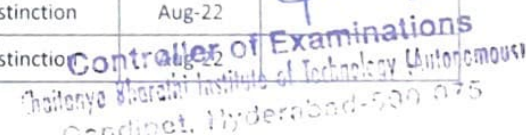 stinction Aug-22
stinction Aug-22
Controller of Examinations
Chaitanya Bharathi Institute of Technology (Autonomous)
Gandipet, Hyderabad-500 075